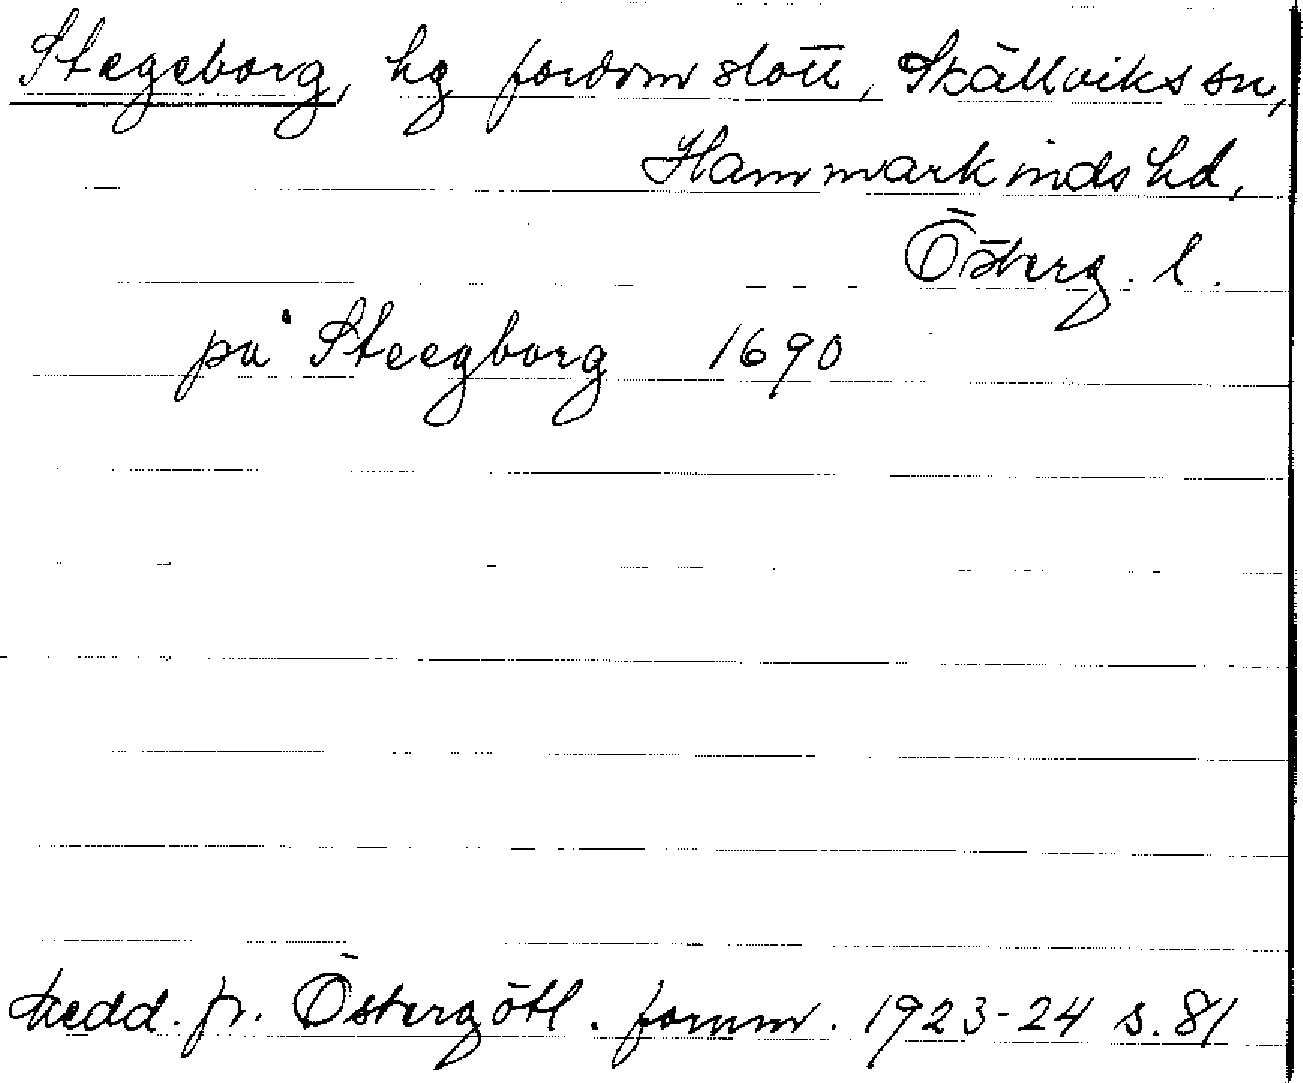 Stegeborg, hg fordom slott, Skällviks sn,
Hammarkinds hd,
Österg. l.
på Steegborg 1690
Medd. fr. Östergötl. fornm. 1923-24 s. 81